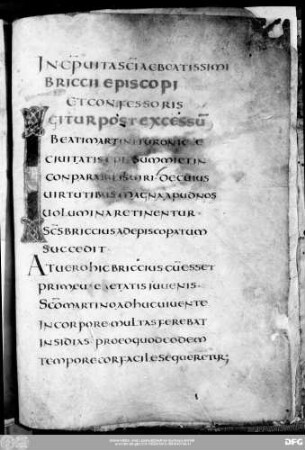 INCP UITA SCI AC BEATISSIMI
BRICCII EPISCOPI
ET CONFESSORIS
IGITUR POST EXCESSU
BEATI MARTINI TURONICAE
CIUITATIS EPI SUMMI ET IN
CONPARABILIS UIRI DE CUIUS
UIRTUTIBUS MAGNA APUD NOS
UOLUMINA RETINENTUR
SCS BRICCIUS AD EPISCOPATUM
SUCCEDIT
AT UERO HIC BRICCIUS CU ESSET
PRIMEUAE AETATIS IUUENIS
SCO MARTINO ADHUC UIUENTE
IN CORPORE MULTAS FEREBAT
INSIDIAS PRO EO QUOD EODEM
TEMPORE COR FACILE SEQUERETUR;
DFG